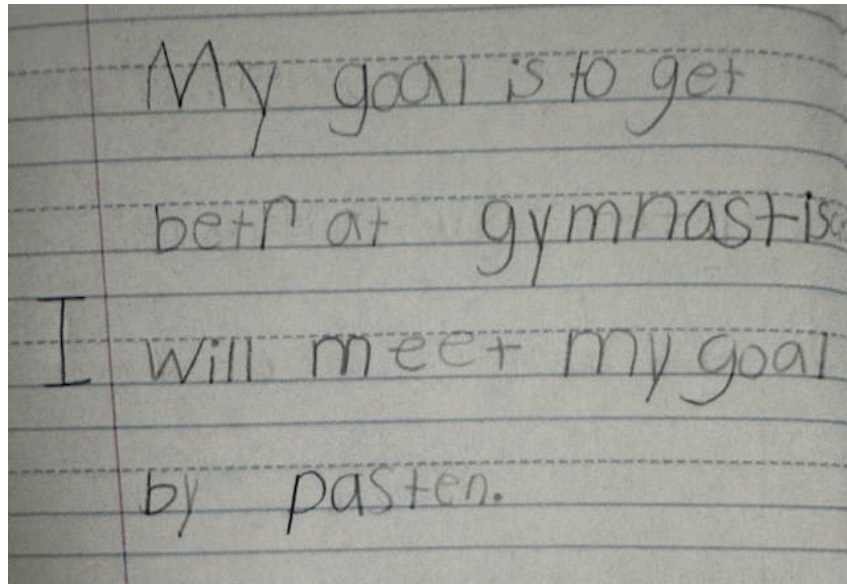 My goal is to get
betr at gymnastisc
I will meet my goal
by pasten.